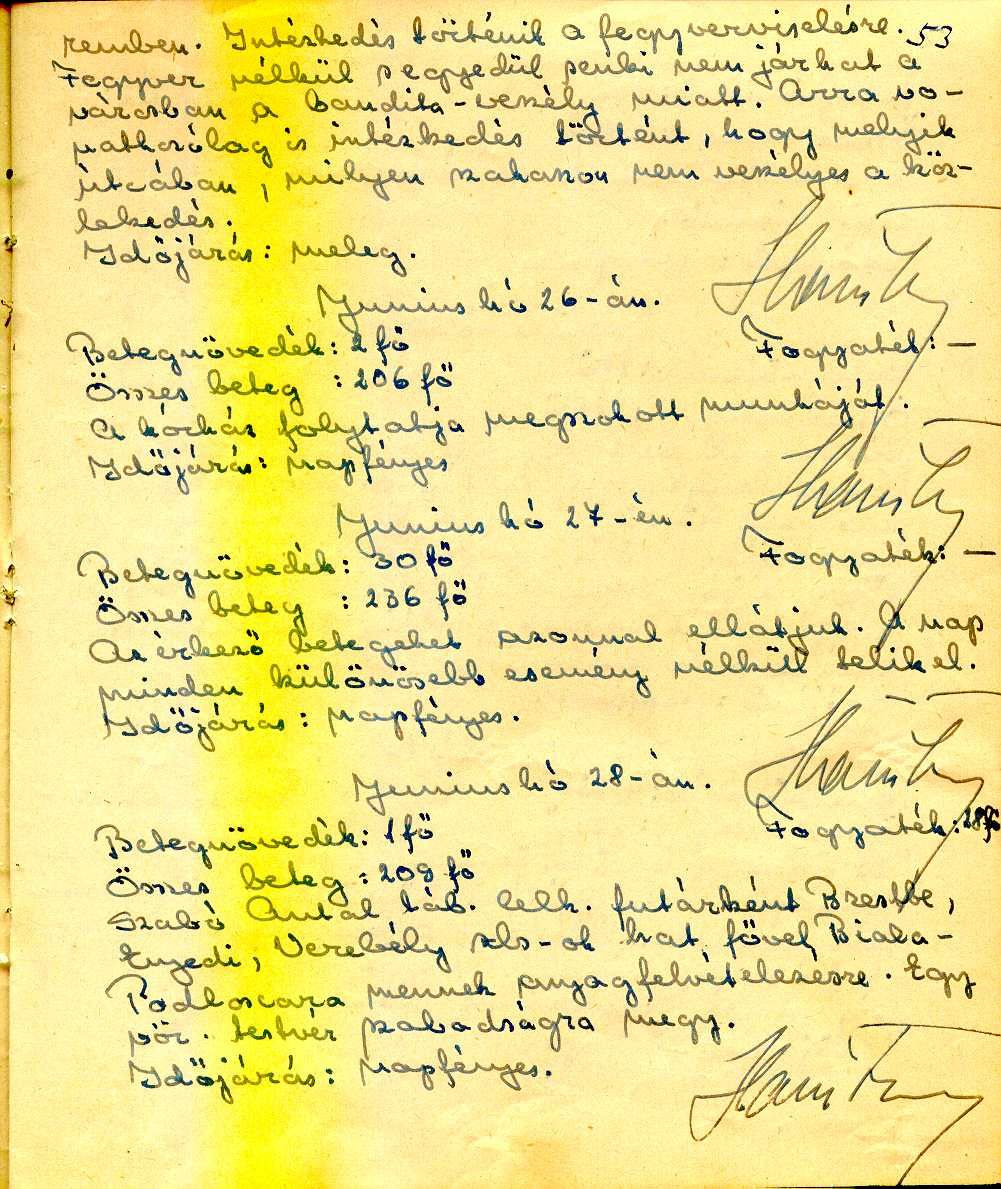 remben. Intézkedés történik a fegyverviselésre. 53
Fegyver nélkül s egyedül senki nem járhat a
városban a bandita-veszély miatt. Arra vo-
natkozólag is intézkedés történt, hogy melyik
útcában, milyen szakaszon nem veszélyes a köz-
lekedés.
Időjárás: meleg.
Junius hó 26-án.
Betegnövedék: 2 fő Fogyaték: —
Összes beteg : 206 fő
A kórház folytatja megszokott munkáját.
Időjárás: napfényes
Junius hó 27-én.
Betegnövedék: 30 fő Fogyaték: —
Összes beteg : 236 fő
Az érkező betegeket azonnal ellátjuk. A nap
minden különösebb esemény nélkül telik el.
Időjárás: napfényes.
Junius hó 28-án.
Betegnövedék: 1 fő Fogyaték: 28 fő
Összes beteg : 209 fő
Szabó Antal táb. lelk. futárként Brestbe,
Enyedi, Verebély zls-ok hat fővel Biala-
Podloscara mennek anyagfelvételezésre. Egy
vör. testvér szabadságra megy.
Időjárás: napfényes.